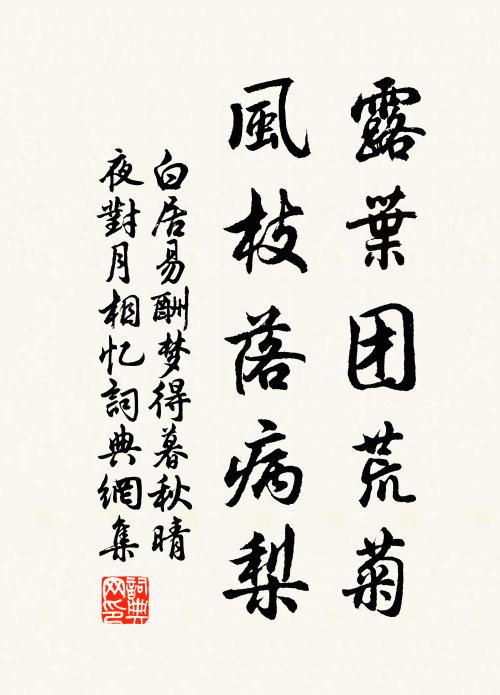 露葉团荒菊
風枝落病梨
白居易酬梦得暮秋晴
夜對月相忆詞典網集
詞典
网印